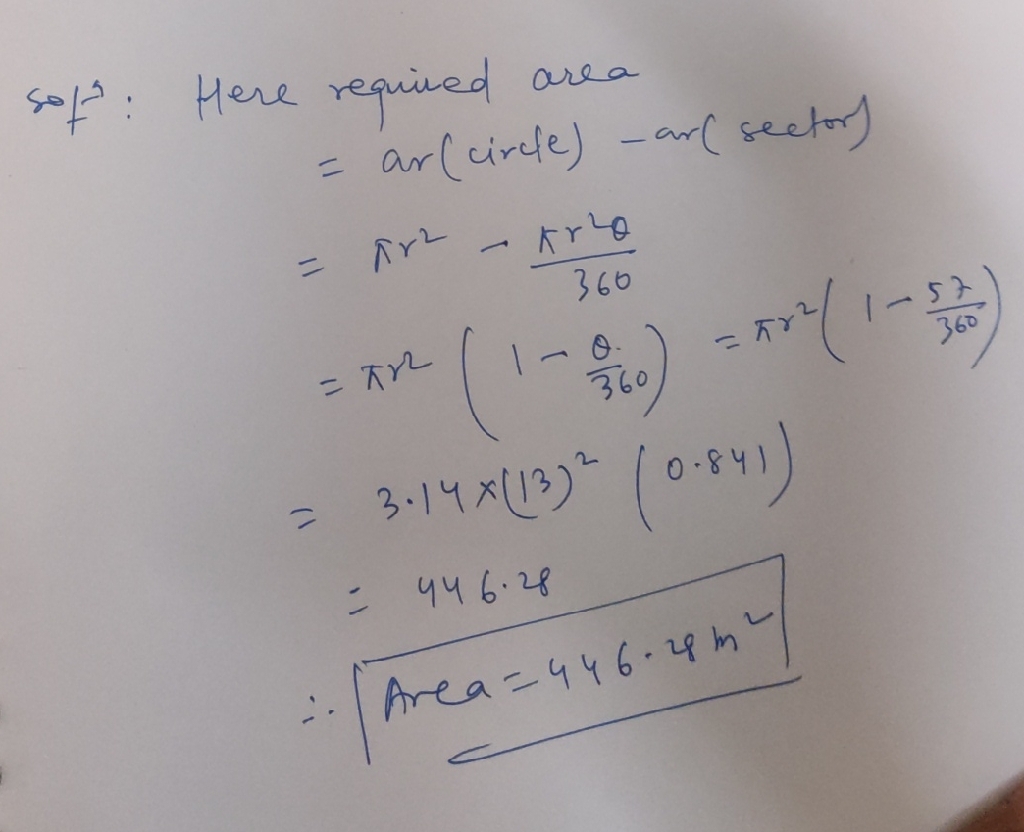 Sol^n: Here required area
= ar(circle) - ar(sector)
= πr² - πr²θ/360
= πr² (1 - θ/360) = πr² (1 - 57/360)
= 3.14 x (13)² (0.841)
= 446.28
∴ Area = 446.28 m²